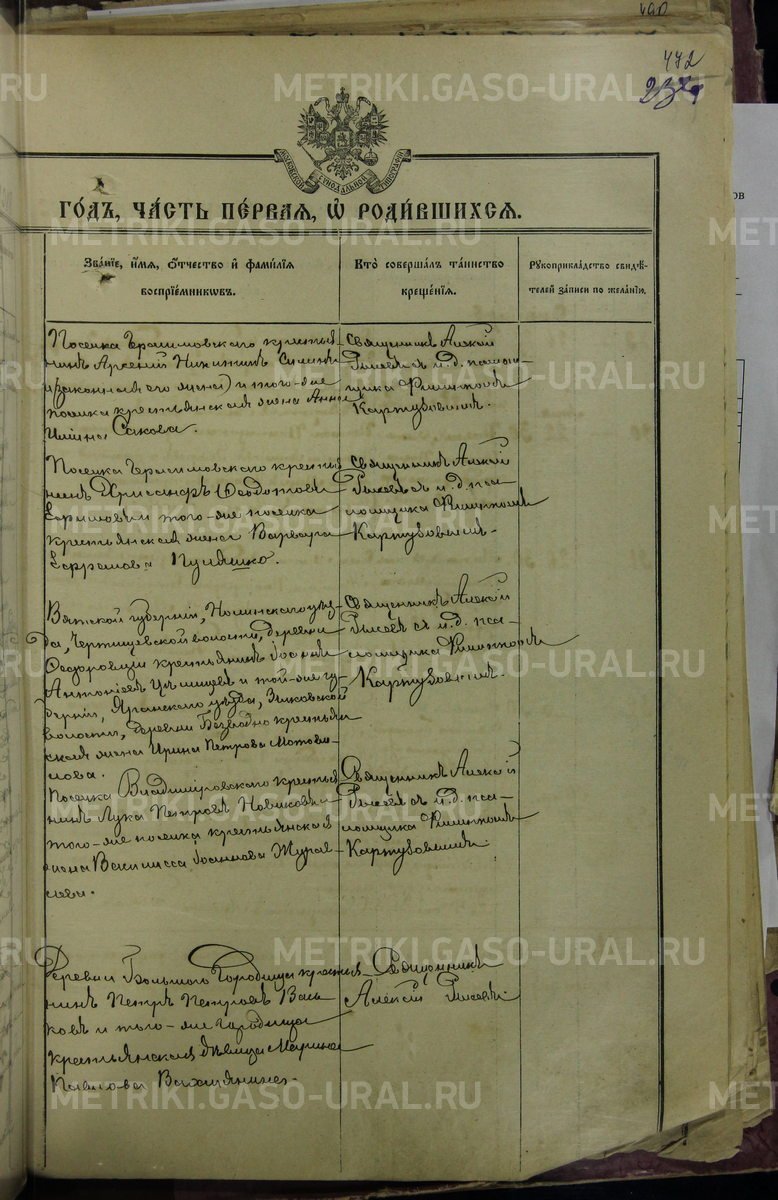 490
472
МОСКОВСКОЙ СѴНОДАЛЬНОЙ ТИПОГРАФІИ
ГО́ДЪ, ЧА́СТЬ ПЕ́РВАѦ, Ѡ҆ РОДИ́ВШИХСѦ.
Зва́нїе, и҆́мѧ, ѻ҆́тчество и҆ фами́лїѧ
воспрїе́мникѡвъ.
Кто̀ соверша́лъ та́инство
креще́нїѧ.
Рꙋкоприкла́дство свидѣ́-
телей за́писи по жела́нїю.
Поселка Герасимовскаго крестья-
нинъ Арсений Никитинъ
(законная его жена) и того-же
поселка крестьянская жена Анна
Сакова.
Священникъ Алексій
съ и. д. псалом-
щика Филиппомъ
Картузовымъ.
Поселка Герасимовскаго крестья-
нинъ Хрисанфъ Ѳеодотовъ
и того-же поселка
крестьянская жена Варвара
Ефрамова Пуляшко.
Священникъ Алексій
съ и. д. пса-
ломщика Филиппомъ
Картузовымъ.
Вятской губерніи, Нолинскаго уѣз-
да, волости, деревни
крестьянинъ Іоаннъ
Антоніевъ и той-же гу-
берніи, Яранскаго уѣзда, Зыковской
волости, деревни Безводно крестьян-
ская жена Ирина Петрова Мотови-
лова.
Священникъ Алексій
съ и. д. пса-
ломщика Филиппомъ
Картузовымъ.
Поселка Владимировскаго крестья-
нинъ Лука Петровъ Новиковъ и
того-же поселка крестьянская
жена Василисса Іоаннова Журав-
лева.
Священникъ Алексій
съ и. д. пса-
ломщика Филиппомъ
Картузовымъ.
Деревни Большого Городища крестья-
нинъ Петръ Петровъ Вась-
ковъ и того-же Городища
крестьянская дѣвица Марина
Павлова
Священникъ
Алексій
METRIKI.GASO-URAL.RU